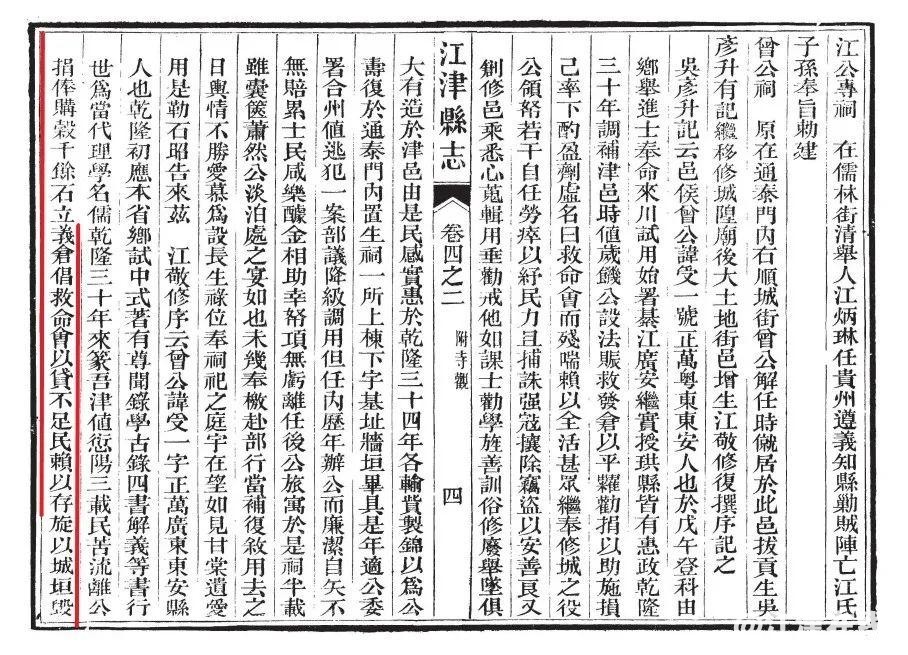 江公專祠　在儒林街清舉人江炳琳任貴州遵義知縣勦賊陣亡江氏
子孫奉旨勅建
曾公祠　原在通泰門內右順城街曾公解任時僦居於此邑拔貢生吳
彥升有記繼移修城隍廟後大土地街邑增生江敬修復撰序記之
吳彥升記云邑侯曾公諱受一號正萬粵東東安人也於戊午登科由
鄉舉進士奉命來川試用始署綦江廣安繼實授珙縣皆有惠政乾隆
三十年調補津邑時値歲饑公設法賑救發倉以平糶勸捐以助施損
己率下酌盈劑虛名曰救命會而殘喘賴以全活甚眾繼奉修城之役
公領帑若干自任勞瘁以紓民力且捕誅强寇攘除竊盜以安善良又
創修邑乘悉心蒐輯用垂勸戒他如課士勸學旌善訓俗修廢舉墜俱
江津縣志
卷四之二
附寺觀
四
大有造於津邑由是民感實惠於乾隆三十四年各輸貲製錦以爲公
壽復於通泰門內置生祠一所上棟下字基址牆垣畢具是年適公委
署合州値逃犯一案部議降級調用但任內歷年辦公而廉潔自矢不
無賠累士民咸樂醵金相助幸帑項無虧離任後公旅寓於是祠半載
雖囊篋蕭然公淡泊處之宴如也未幾奉檄赴部行當補復敘用去之
日輿情不勝愛慕爲設長生祿位奉祠祀之庭宇在望如見甘棠遺愛
用是勒石昭告來兹　江敬修序云曾公諱受一字正萬廣東東安縣
人也乾隆初應本省鄉試中式著有尊聞錄學古錄四書解義等書行
世爲當代理學名儒乾隆三十年來篆吾津値愆陽三載民苦流離公
捐俸購穀千餘石立義倉倡救命會以貸不足民賴以存旋以城垣毀